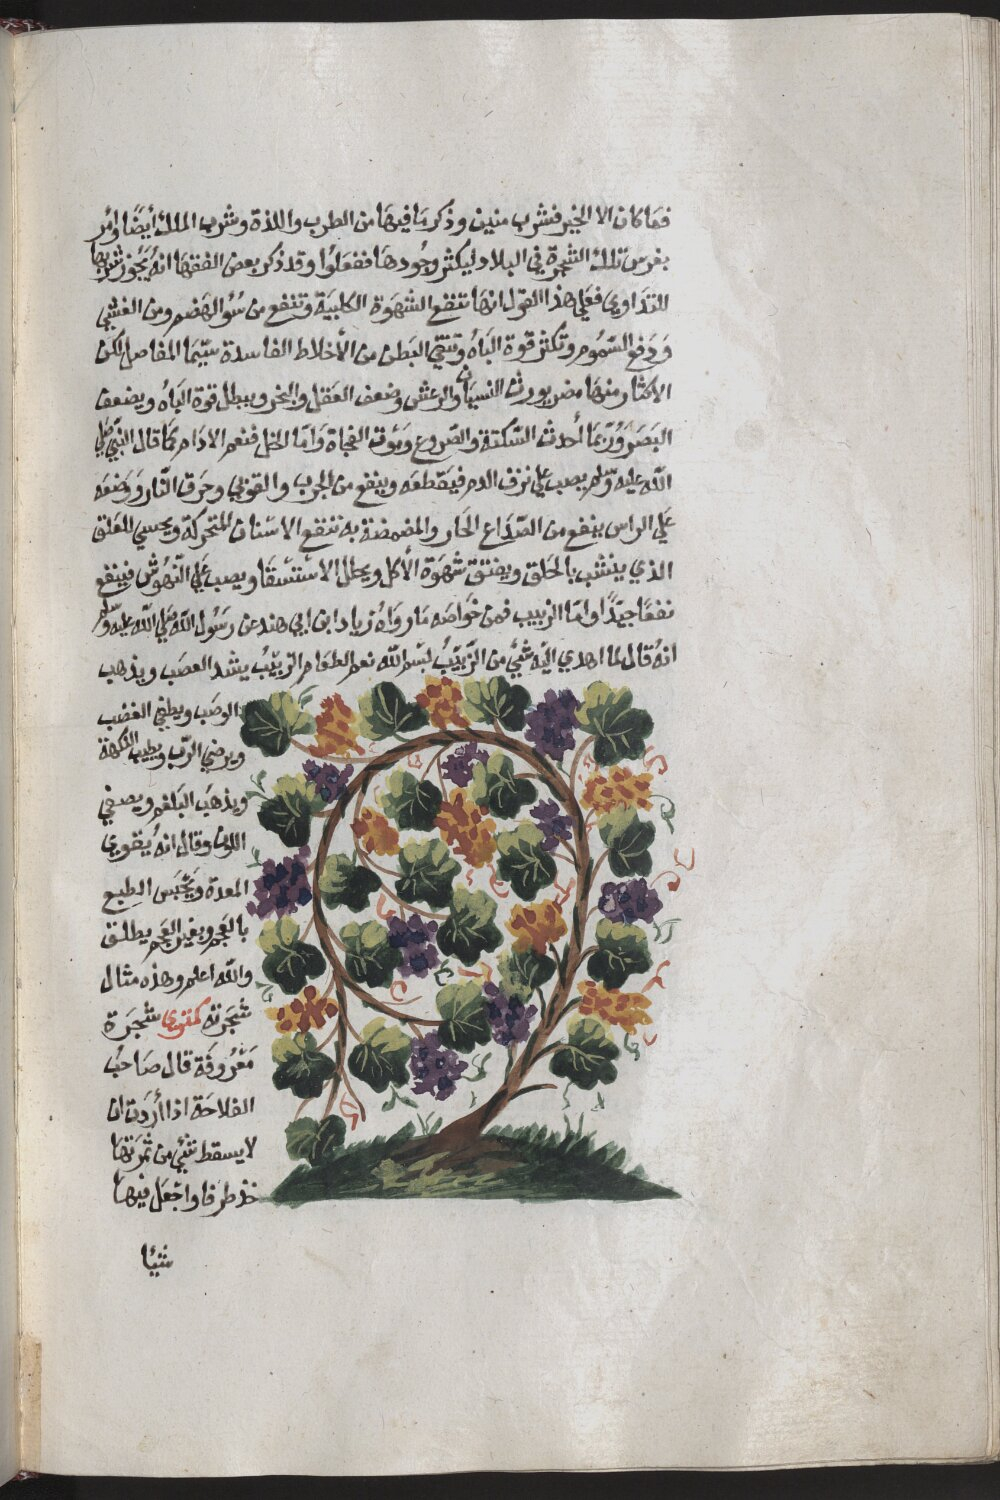 فما كان الا الخير فشرب منين وذكر ما فيها من الطرب واللذة وشرب الملك أيضا وأمر
بغرس تلك الشجرة في البلاد ليكثر وجودها ففعلوا وقد ذكر بعض الفقها انه يجوز شربها
للتداوي فعلي هذا القول انها تنفع الشهوة الكلبية وتنفع من سؤ الهضم ومن الغشي
ودفع السموم وتكثر قوة الباه وتنقي البطن من الأخلاط الفاسدة سيما المفاصل لكن
الاكثار منها مضر يورث النسيان والرعش وضعف العقل والبخر ويبطل قوة الباه ويضعف
البصر وربما أحدث السكتة والصروع وموت الفجاة وأما الخل فنعم الادام كما قال النبي صلي
الله عليه وسلم يصب علي نزف الدم فيقطعه وينفع من الجرب والقوبي وحرق النار ووضعه
علي الراس ينفع من الصداع الحار والمضمضة به تنفع الاسنان المتحركة ويحسي للعلق
الذي ينشب بالحلق ويفتق شهوة الأكل ويحلل الاستسقا ويصب علي النهوش فينفع
نفعا جيدا واما الزبيب فمن خواصه ما رواه زياد ابن ابي هند عن رسول الله صلي الله عليه وسلم
انه قال لما اهدي اليه شئ من الزبيب بسم الله نعم الطعام الزبيب يشد العصب ويذهب
الوصب ويطفي الغضب
ويرضي الرب ويطيب النكهة
ويذهب البلغم ويصفي
اللون وقال انه يقوي
المعدة ويحبس الطبع
بالعجم وبغير العجم يطلق
والله اعلم وهذه مثال
شجرته كمثري شجرة
معروفة قال صاحب
الفلاحة اذا أردت ان
لا يسقط شئ من ثمرتها
خذ طرفا واجعل فيها
شيئا